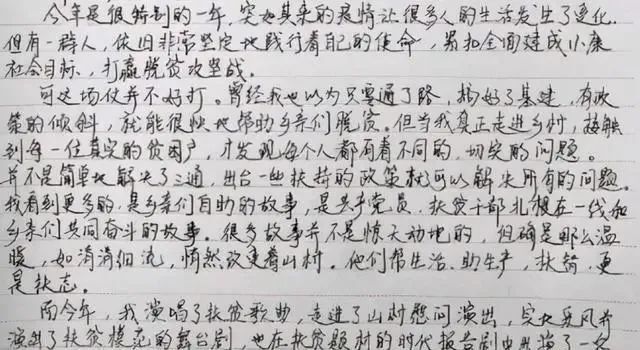 今年是很特别的一年，突如其来的疫情让很多人的生活发生了变化。
但有一群人，依旧非常坚定地践行着自己的使命，紧扣全面建成小康
社会目标，打赢脱贫攻坚战。
可这场仗并不好打。曾经我也以为只要通了路，搞好了基建，有政
策的倾斜，就能很快地帮助乡亲们脱贫。但当我真正走进乡村，接触
到每一位真实的贫困户，才发现每个人都有着不同的、切实的问题。
并不是简单地解决了三通，出台一些扶持的政策就可以解决所有的问题。
我看到更多的，是乡亲们自助的故事，是共产党员、扶贫干部扎根在一线和
乡亲们共同奋斗的故事。很多故事并不是惊天动地的，但确是那么温
暖，如涓涓细流，悄然改变着山村。他们帮生活、助生产，扶智、更
是扶志。
而今年，我演唱了扶贫歌曲，走进了山村慰问演出，实地采风并
演出了扶贫模范的舞台剧，也在扶贫题材的时代报告剧中出演了一名